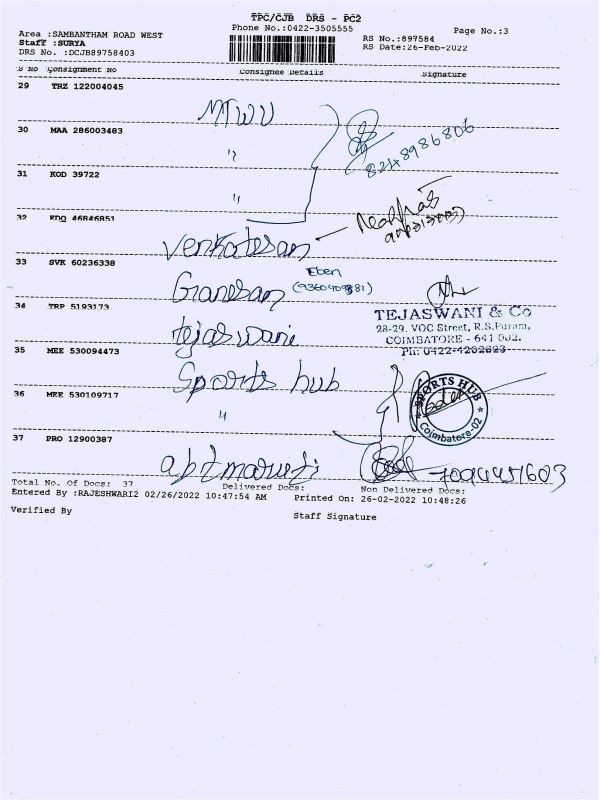 TPC/CJB DRS - PC2
Phone No.:0422-3505555
Page No.:3
Area :SAMBANTHAM ROAD WEST
Staff :SURYA
RS No.:897584
DRS No. :DCJB89758403
RS Date:26-Feb-2022
S No Consignment No Consignee Details Signature
29 TRZ 122004045
MTWU
30 MAA 286003483
"
8248986806
31 KOD 39722
"
32 EDQ 46846851
Venkatesan
33 SVK 60236338
Eben
Ganesan
34 TRP 5193173
tejaswani
TEJASWANI & Co
28-29, VOC Street, R.S.Puram,
COIMBATORE - 641 002.
Ph: 0422-4202693
35 MEE 530094473
Sports hub
SPORTS HUB
Coimbatore-02
36 MEE 530109717
"
37 PRO 12900387
apt maruti
Total No. Of Docs: 37 Delivered Docs: Non Delivered Docs:
Entered By :RAJESHWARI2 02/26/2022 10:47:54 AM Printed On: 26-02-2022 10:48:26
Verified By
Staff Signature